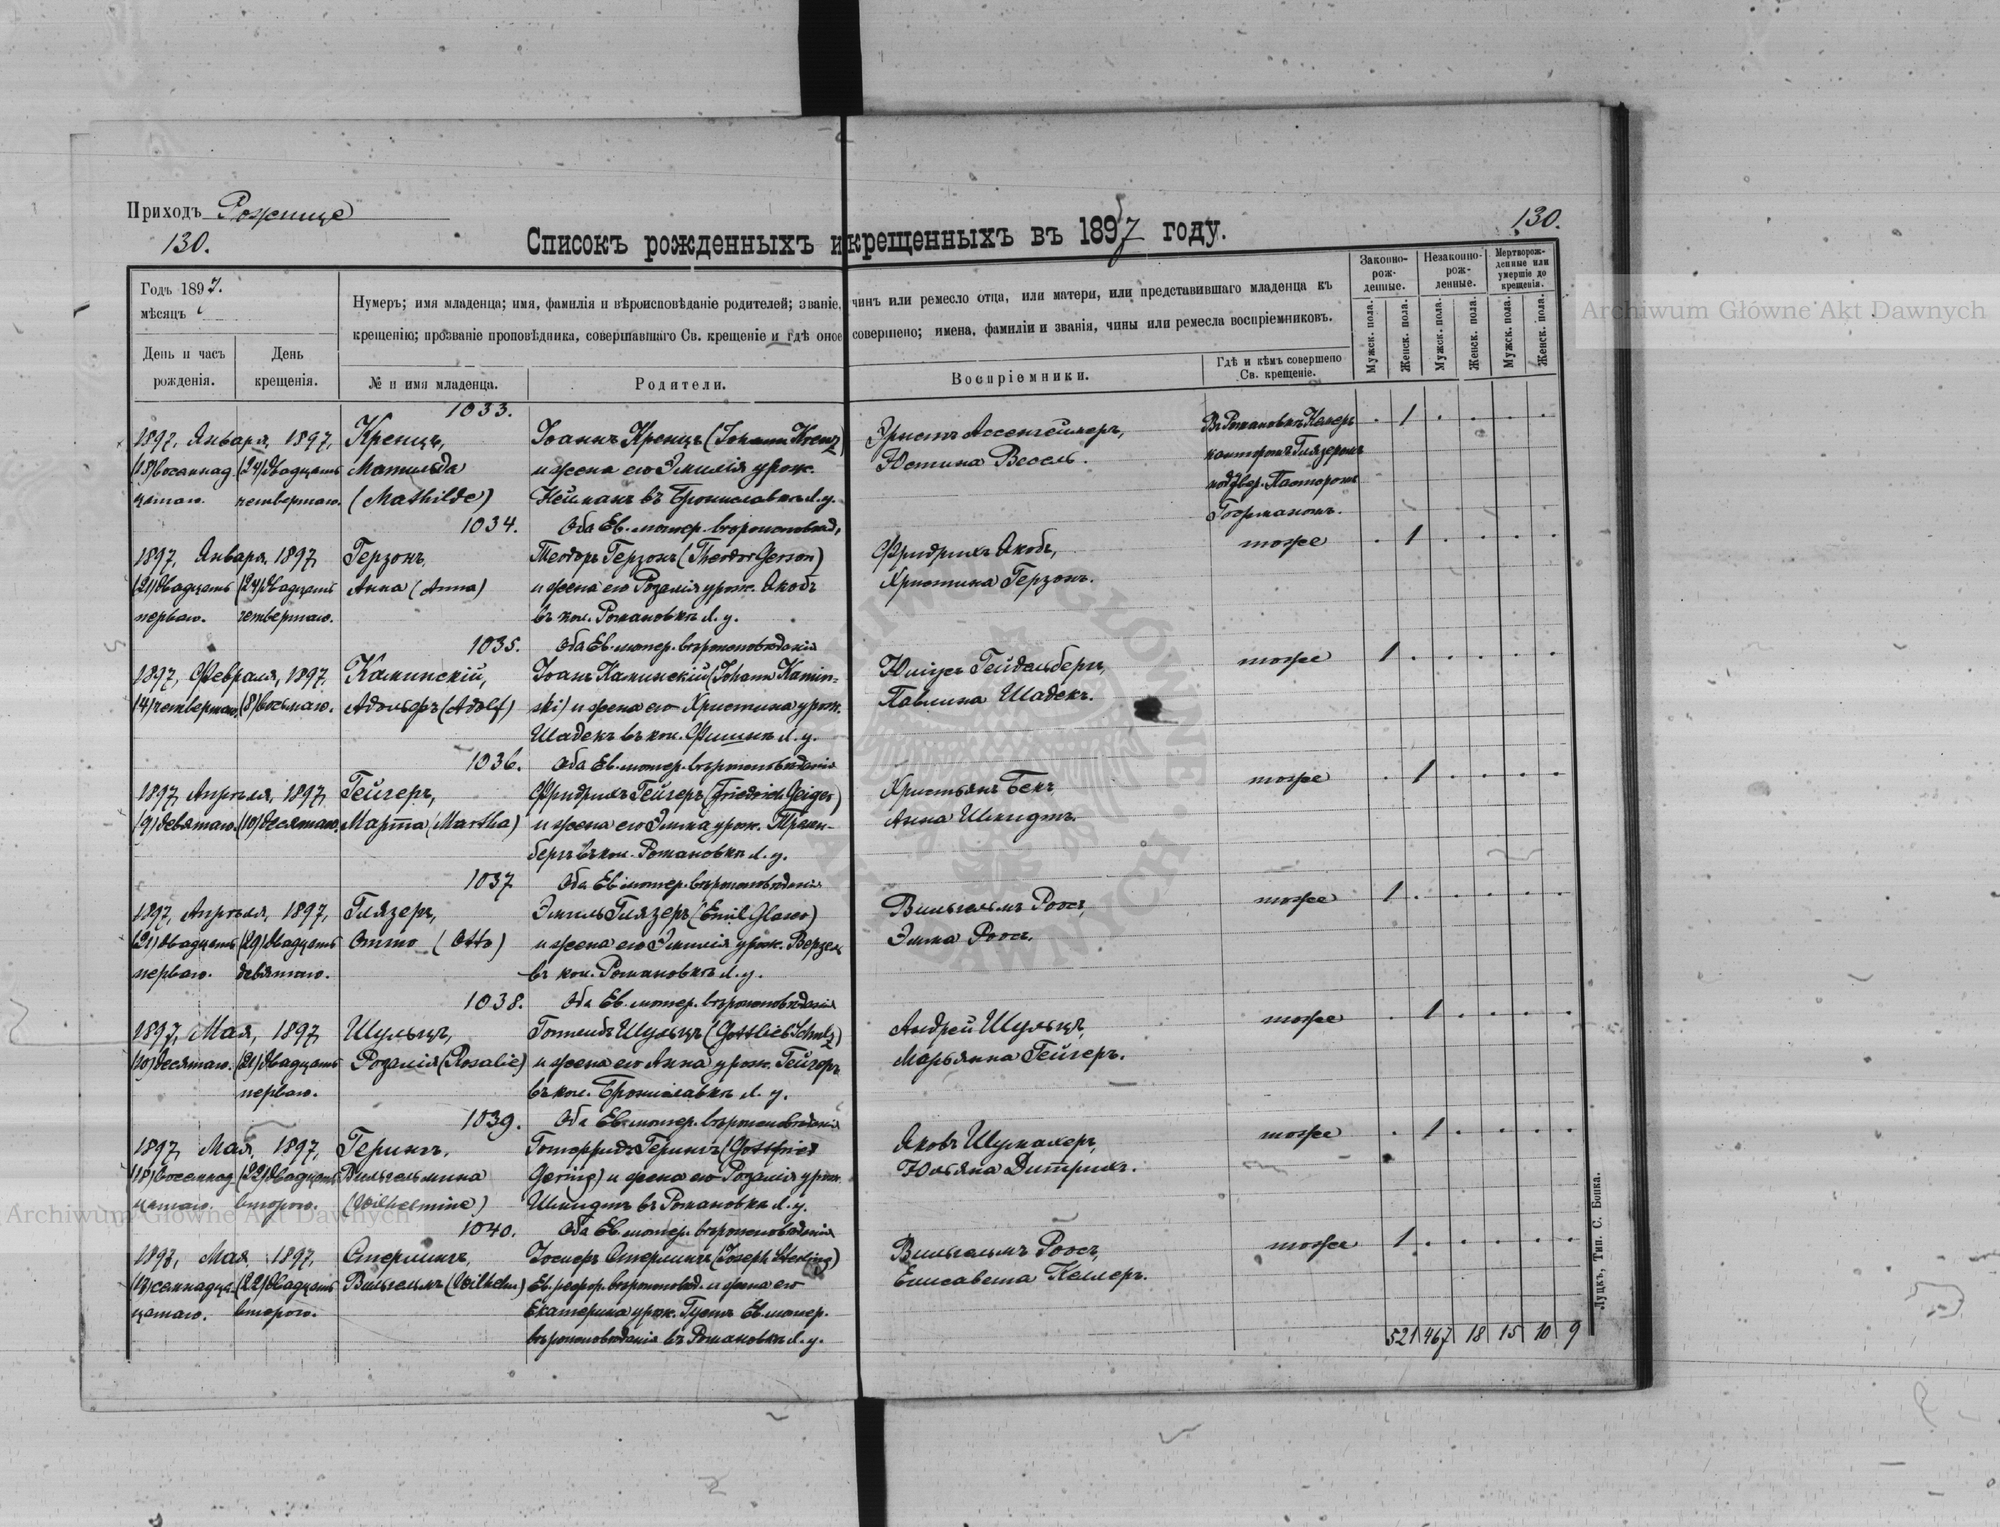 Приходъ Рожище
130.
130.
Списокъ рожденныхъ и крещенныхъ въ 1897 году.
Годъ 1897.
мѣсяцъ
День и часъ рожденія.
День крещенія.
Нумеръ; имя младенца; имя, фамилія и вѣроисповѣданіе родителей; званіе, чинъ или ремесло отца, или матери, или представившаго младенца къ
крещенію; прозваніе проповѣдника, совершавшаго Св. крещеніе и гдѣ оное совершено; имена, фамиліи и званія, чины или ремесла воспріемниковъ.
№ и имя младенца.
Родители.
Воспріемники.
Гдѣ и кѣмъ совершено Св. крещеніе.
Законно-рож-денные.
Незаконно-рож-денные.
Мертворож-денные или умершіе до крещенія.
Мужск. пола.
Женск. пола.
Мужск. пола.
Женск. пола.
Мужск. пола.
Женск. пола.
Archiwum Główne Akt Dawnych
1033.
1897, Января, 1897, Кренцъ, Іоаннъ Кренцъ (Johann Krenz) Эрнстъ Ассенгеймеръ, Въ Романовкѣ . 1 . . . .
(18) восемнад (24) двадцать Матильда и жена его Эмилія урож. Юстина Весель. канторомъ Глязеромъ
цатаго. четвертаго. (Mathilde) Нейманъ въ Брониславкѣ Л. у. подтвер. Пасторомъ
1034. Оба Ев. лютер. вѣроисповѣд,
1897, Января, 1897, Герзонъ, Теодоръ Герзонъ (Theodor Gerson) Фридрихъ Якобъ, тоже . 1 . . . .
(21) двадцать (24) двадцать Анна (Anna) и жена его Розалія урож. Якобъ Христина Герзонъ.
перваго. четвертаго. въ кол. Романовкѣ Л. у.
1035. Оба Ев. лютер. вѣроисповѣданія
1897, Февраля, 1897, Каминскій, Іоанъ Каминскій (Johann Kamin- Юліусъ Гейдельбергъ, тоже 1 . . . . .
(4) четвертаго. (8) восьмаго. Адольфъ (Adolf) ski) и жена его Христина урож. Павлина Шадекъ.
Шадекъ въ кол. Л. у.
1036. Оба Ев. лютер. вѣроисповѣданія
1897, Апрѣля, 1897, Гейгеръ, Фридрихъ Гейгеръ (Friedrich Geiger) Христьянъ Бекъ, тоже . 1 . . . .
(9) девятаго. (10) десятаго. Марта (Martha) и жена его Эмма урож. Анна Шмидтъ.
бергъ въ кол. Романовкѣ Л. у.
1037 Оба Ев. лютер. вѣроисповѣданія
1897, Апрѣля, 1897, Глязеръ, Эмиль Глязеръ (Emil Glaser) Вильгельмъ Роосъ, тоже 1 . . . . .
(21) двадцать (29) двадцать Отто (Otto) и жена его Эмилія урож. Эмма Роосъ.
перваго. девятаго. въ кол. Романовкѣ Л. у.
1038. Оба Ев. лютер. вѣроисповѣданія
1897, Мая, 1897, Шульцъ, Готлибъ Шульцъ (Gottlieb Schulz) Андрей Шульцъ, тоже . 1 . . . .
(10) десятаго. (21) двадцать Розалія (Rosalie) и жена его Анна урож. Гейгеръ Марьянна Гейгеръ.
перваго. въ кол. Брониславкѣ Л. у.
1039. Оба Ев. лютер. вѣроисповѣданія
1897, Мая, 1897, Герингъ, Готфридъ Герингъ (Gottfried Яковъ Шумахеръ, тоже . 1 . . . .
(18) восемнад (22) двадцать Вильгельмина Gering) и жена его Розалія урож. Юльяна Дитрихъ.
цатаго. второго. (Wilhelmine) Шмидтъ въ Романовкѣ Л. у.
1040. Оба Ев. лютер. вѣроисповѣданія
1897, Мая, 1897, Стерлингъ, Іосифъ Стерлингъ (Joseph Sterling) Вильгельмъ Роосъ, тоже 1 . . . . .
(22) двадцать Вильгельмъ (Wilhelm) Ев. рефор. вѣроисповѣд. и жена его Елисавета Келлеръ.
цатаго. второго. Екатерина урож. Ев. лютер.
вѣроисповѣданія въ Романовкѣ Л. у.
521 467 18 15 10 9
Луцкъ, Тип. С. Бонка.
Archiwum Główne Akt Dawnych
ARCHIWUM GŁÓWNE AKT DAWNYCH